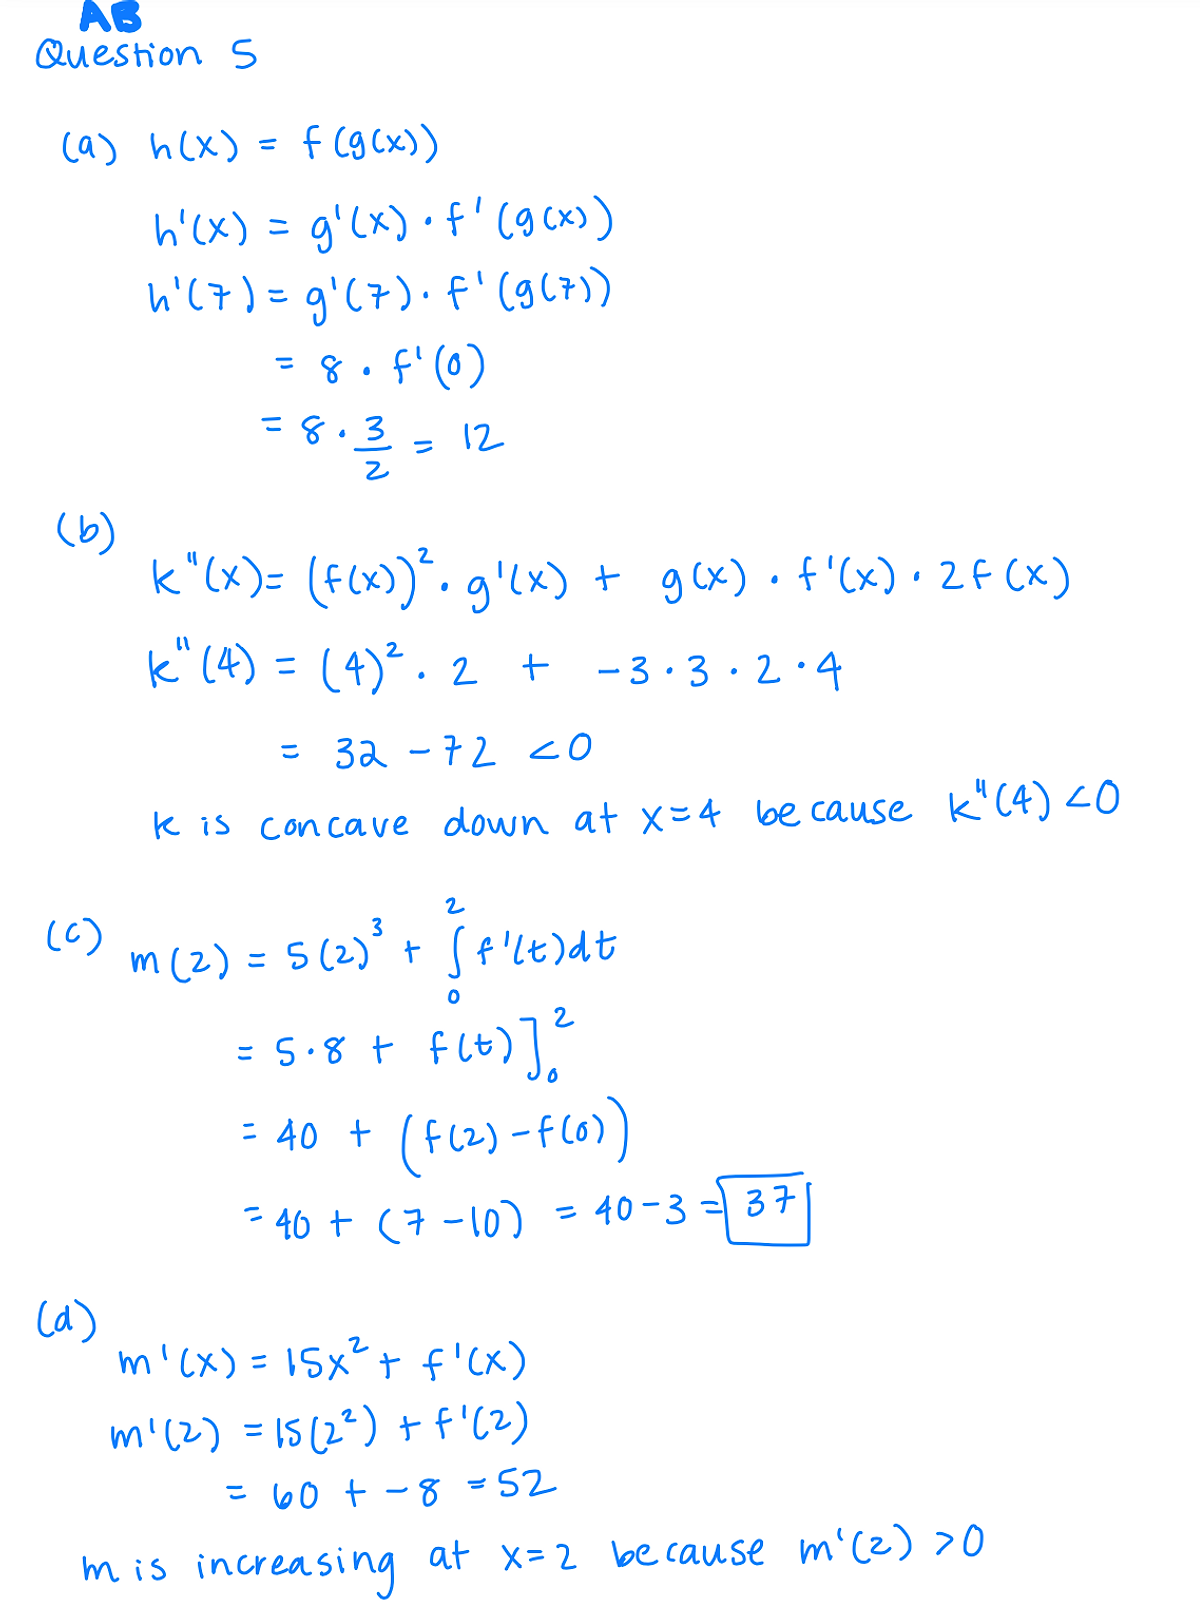 AB
Question 5
(a) h(x) = f(g(x))
h'(x) = g'(x) · f'(g(x))
h'(7) = g'(7) · f'(g(7))
= 8 · f'(0)
= 8 · 3/2 = 12
(b)
k"(x) = (f(x))² · g'(x) + g(x) · f'(x) · 2f(x)
k"(4) = (4)² · 2 + -3 · 3 · 2 · 4
= 32 - 72 < 0
k is concave down at x=4 because k"(4) < 0
(c) m(2) = 5(2)³ + ∫₀² f'(t)dt
= 5·8 + f(t)]₀²
= 40 + (f(2) - f(0))
= 40 + (7 - 10) = 40 - 3 = 37
(d)
m'(x) = 15x² + f'(x)
m'(2) = 15(2²) + f'(2)
= 60 + -8 = 52
m is increasing at x=2 because m'(2) > 0